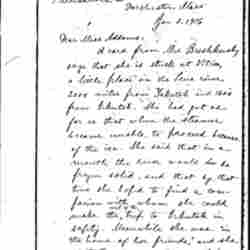 Dorchester, Mass
Jan. 3. 1906
Dear Miss Addams:
A card from Mr Breshkovsky
says that she is stuck at
a little place on the Lena river
2000 miles from Yakutsk and 1000
from Irkutsk. She had got so
far so that when the steamer
became unable to proceed because
of the ice. She said that in a
month the river would be
frozen solid, and that by that
time she hoped to find a com-
panion with whom she could
make the trip to Irkutsk in
safety. Meanwhile she was in
the home of her friends, and she